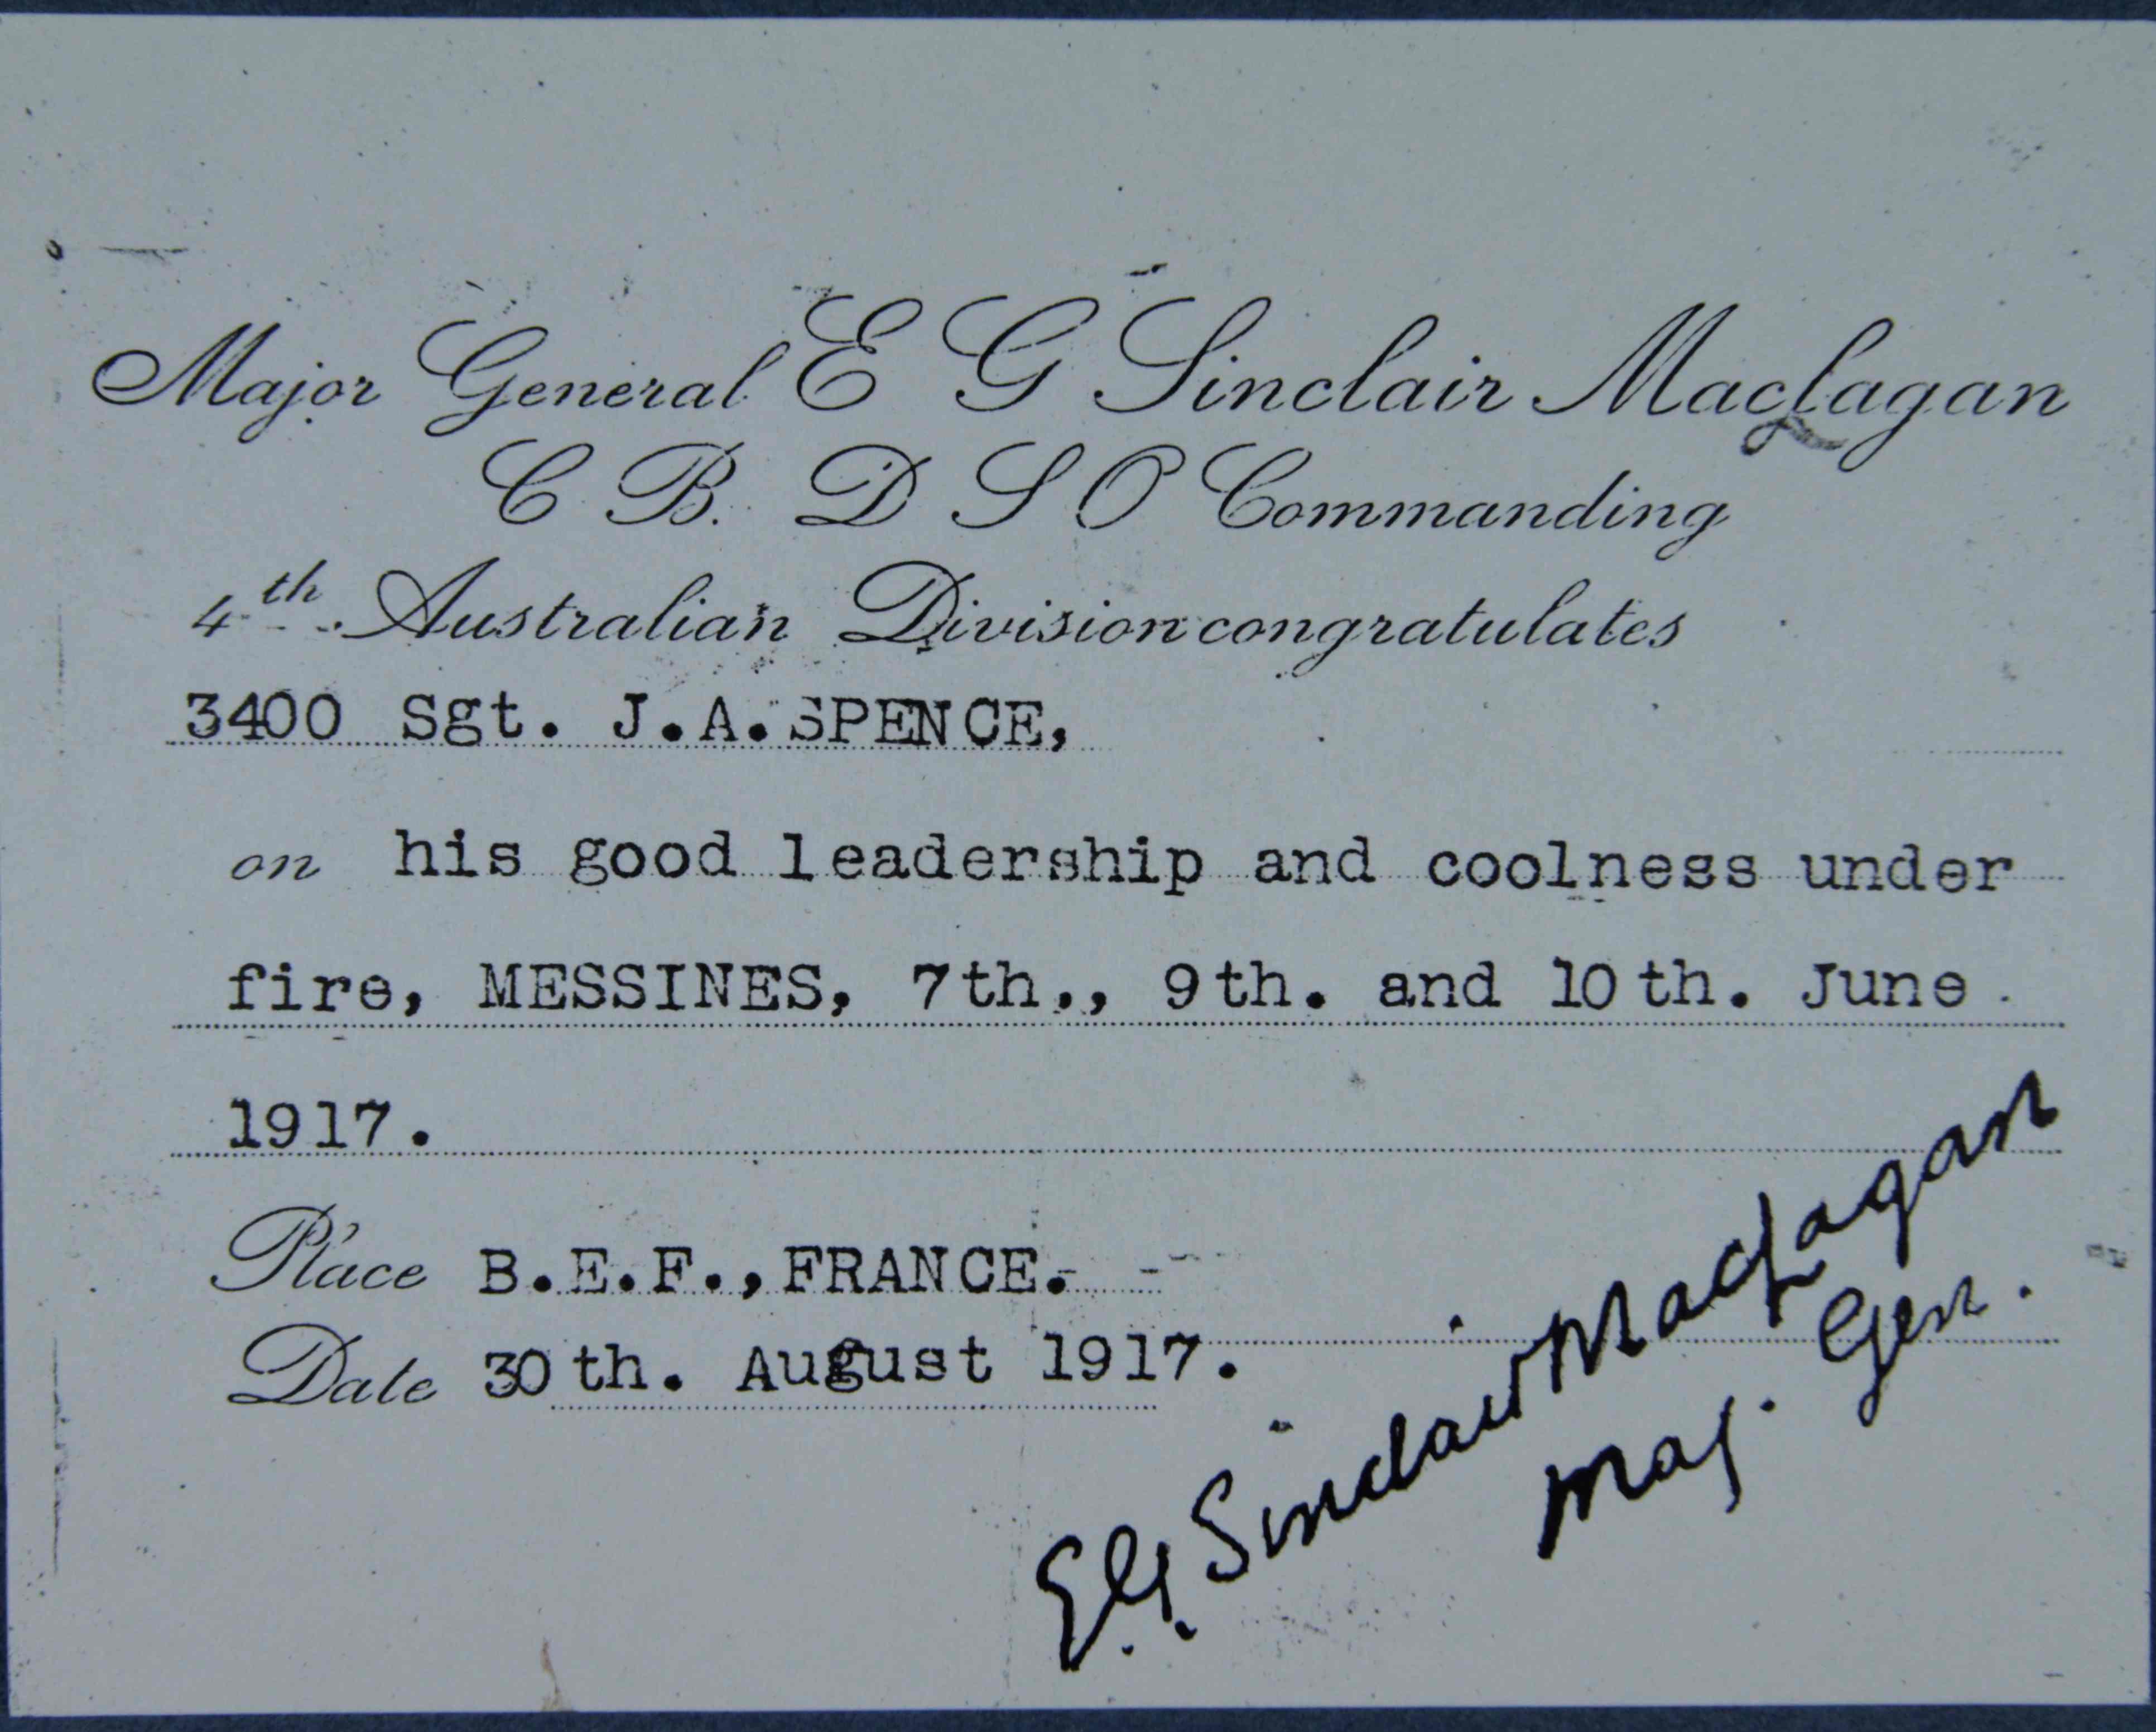 Major General E G Sinclair Maclagan
C B. D S O Commanding
4th. Australian Division congratulates
3400 Sgt. J.A.SPENCE,
on his good leadership and coolness under
fire, MESSINES, 7th., 9th. and 10th. June
1917.
Place B.E.F.,FRANCE.
Date 30th. August 1917.
E.G. Sinclair Maclagan
Maj. Gen.